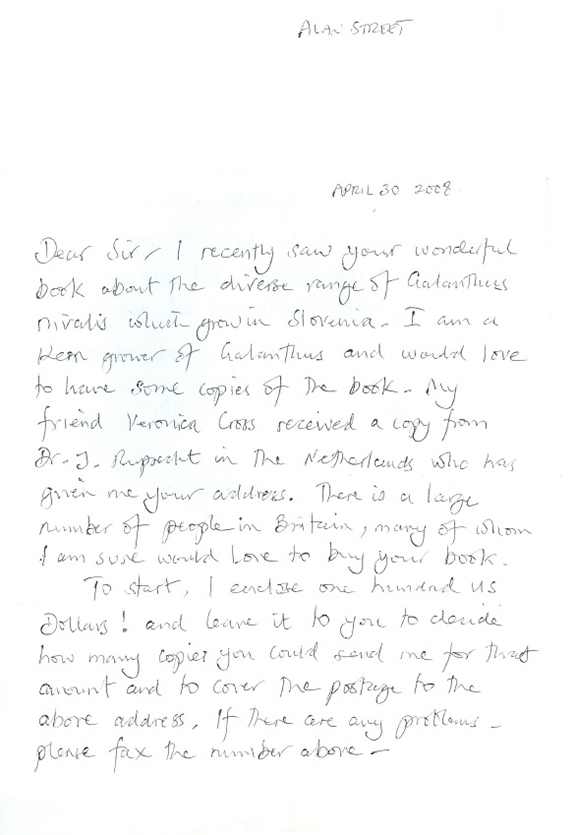 ALAN STREET
APRIL 30 2008
Dear Sir, I recently saw your wonderful
book about the diverse range of Galanthus
nivalis which grow in Slovenia. I am a
keen grower of Galanthus and would love
to have some copies of the book. My
friend Veronica Cross received a copy from
Dr. J. Ruprecht in the Netherlands who has
given me your address. There is a large
number of people in Britain, many of whom
I am sure would love to buy your book.
To start, I enclose one hundred US
Dollars! and leave it to you to decide
how many copies you could send me for that
amount and to cover the postage to the
above address. If there are any problems -
please fax the number above -